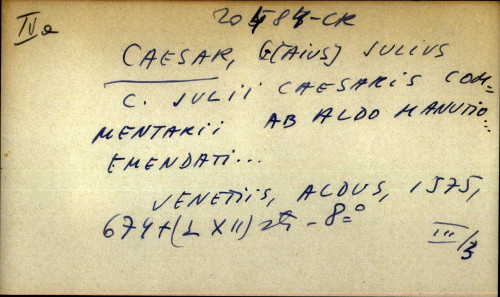 IVa
CAESAR, G[AIUS] JULIUS
C. JULII CAESARIS COM=
MENTARII AB ALDO MANUTIO...
EMENDATI...
VENETIIS, ALDUS, 1575,
674+(LXII) - 8=°
III/3